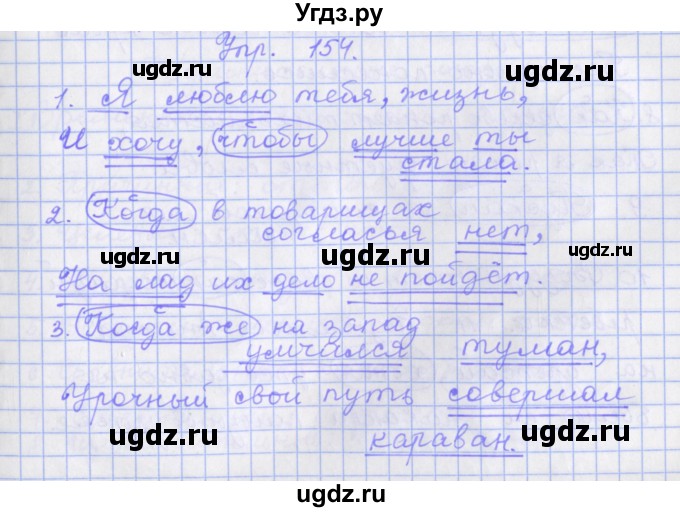 Угдз.ру
Упр. 154.
ugdz.ru ugdz.ru
1. Я люблю тебя, жизнь,
И хочу, чтобы лучше ты
стала.
ugdz.ru ugdz.ru
2. Когда в товарищах
согласья нет,
ugdz.ru ugdz.ru
На лад их дело не пойдёт.
3. Когда же на запад
умчался туман,
ugdz.ru ugdz.ru
Урочный свой путь совершал
караван.
ugdz.ru ugdz.ru
ugdz.ru